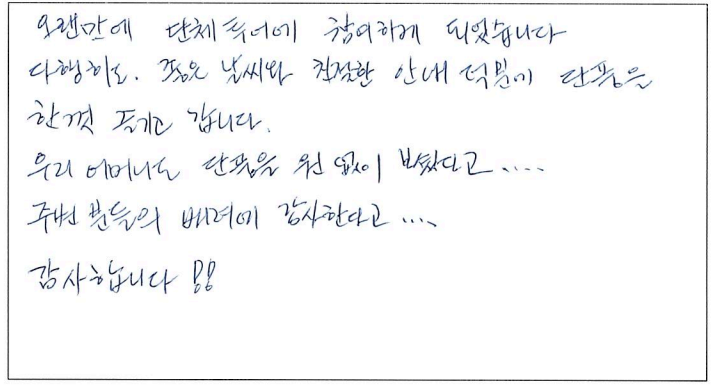 오랜만에 단체 투어에 참여하게 되었습니다
다행히도. 좋은 날씨와 친절한 안내 덕분에 단풍을
한껏 즐기고 갑니다.
우리 어머니는 단풍을 원 없이 보셨다고....
주변 분들의 배려에 감사한다고....
감사합니다 !!